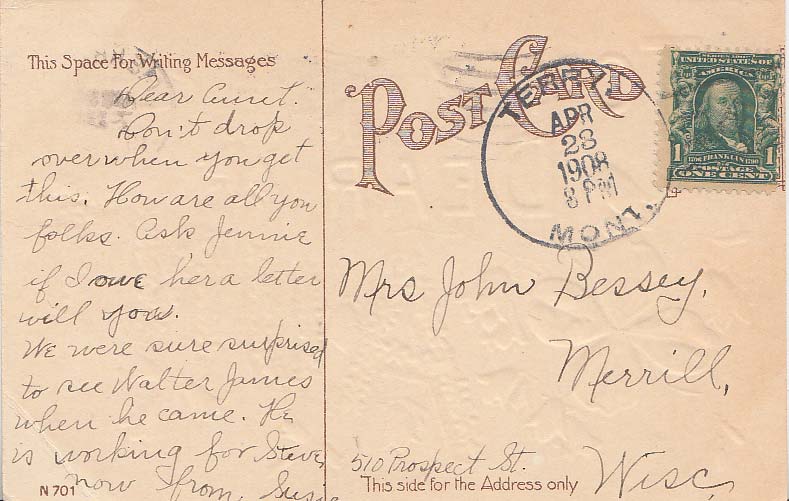 This Space For Writing Messages
Dear Aunt.
Don't drop
over when you get
this. How are all you
folks. Ask Jennie
if I owe her a letter
will you.
We were sure surprised
to see Walter James
when he came. He
is working for Steve
now from
N 701
POST CARD
TERRY,
APR
28
1908
8 PM
MONT.
UNITED STATES OF
AMERICA
1 1706 FRANKLIN 1790 1
POSTAGE
ONE CENT
Mrs John Bessey,
Merrill,
510 Prospect St.
Wisc
This side for the Address only